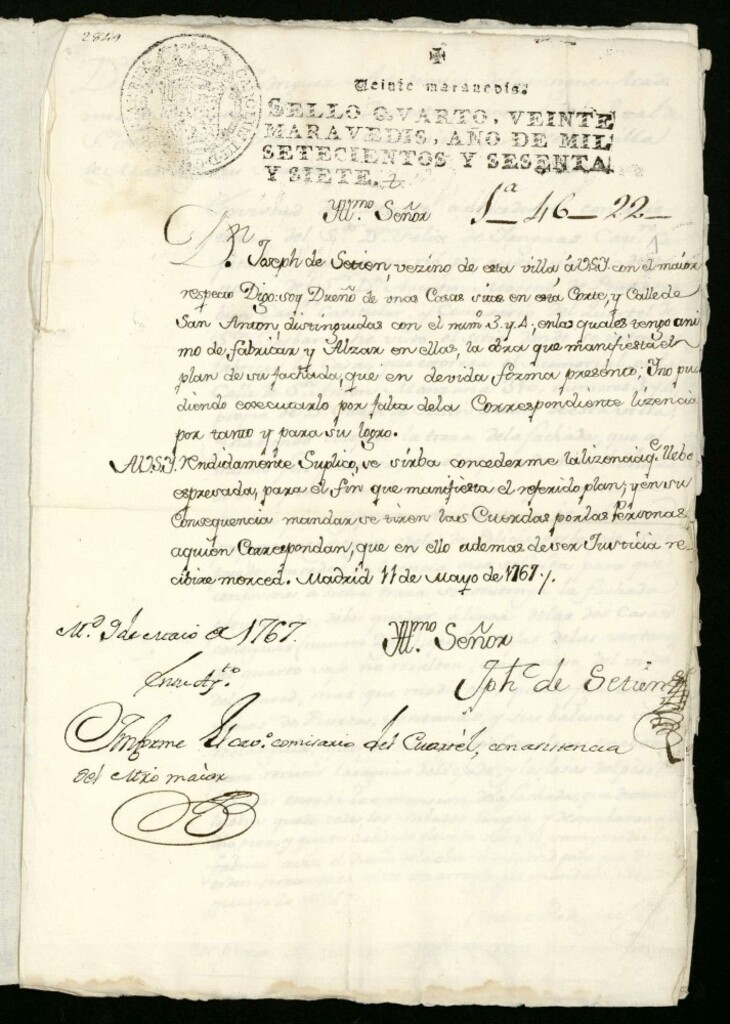 2849
Veinte maravedis.
SELLO QVARTO, VEINTE
MARAVEDIS, AÑO DE MIL
SETECIENTOS Y SESENTA
Y SIETE.
Yllmo. Señor 1ª_46_22_
Dn. Joseph de Setien, vezino de esta villa á VSY con el maior
respecto Digo: soy Dueño de unas Casas sitas en esta Corte, y Calle de
San Anton, distinguidas con el numº 3. y 4; en las quales tengo ani
mo de fabricar y Alzar en ellas, la obra que manifiesta el
plan de su fachada, que en devida forma presento; Y no pu
diendo executarlo por falta dela Correspondiente lizencia
por tanto y para su logro.
AVSY. Rendidamente Suplico, se sirba concederme la lizencia q. llebo
espresada, para el fin que manifiesta el referido plan; y en su
Consequencia mandar se tiren las Cuerdas por las Personas
aquien Correspondan, que en ello ademas de ser Justicia re-
cibire merced. Madrid 11 de Mayo de 1767.
Md. 9 de Maio de 1767. Yllmo. Señor
Jphc de Setien
En su Ayto
Informe el cavº. comisario del Cuartel, con asistencia
del Mtro maior